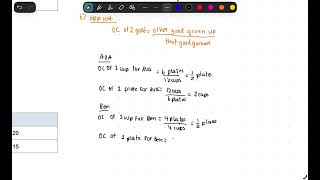 b) opp cost
OC of 1 good = other good given up
that good gained
AVA
OC of 1 cup for Ava = 6 plates / 12 cups = 1/2 plate
OC of 1 plate for Ava = 12 cups / 6 plates = 2 cups
Ben
OC of 1 cup for Ben = 4 plates / 8 cups = 1/2 plate
OC of 1 plate for Ben =
20
15